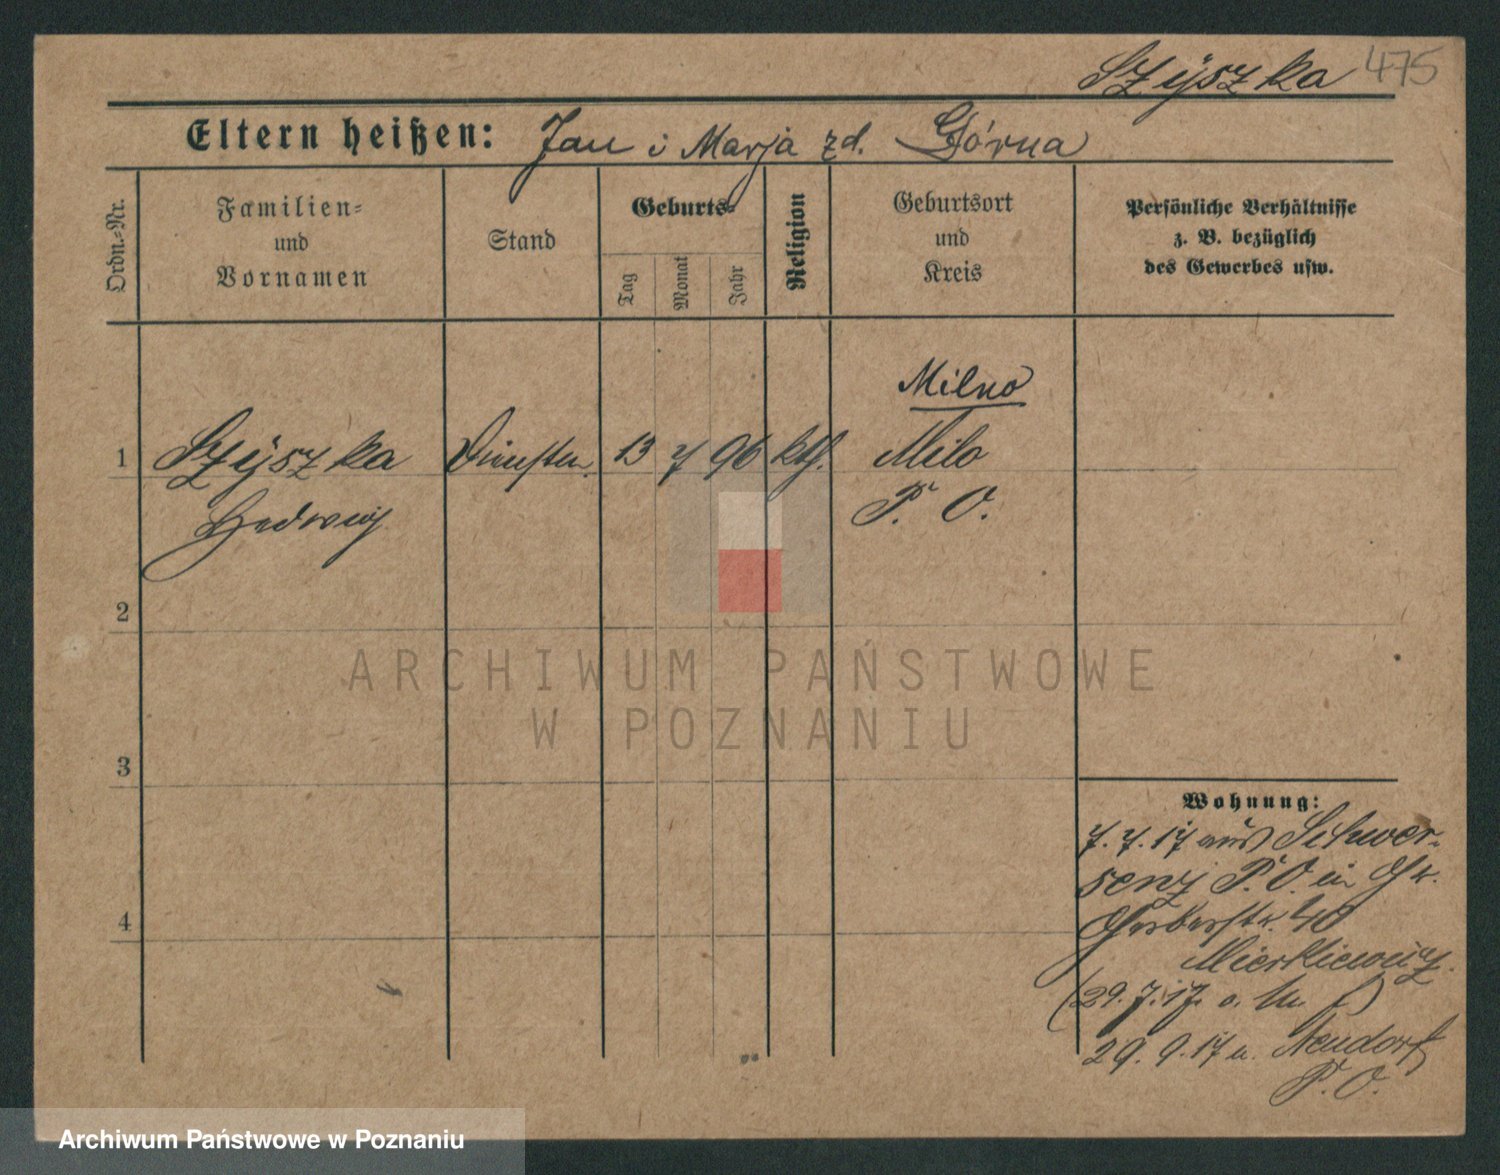 Szyszka 475
Eltern heißen: Jan i Marja zd. Górna
Ordn.-Nr.
Familien-
und
Vornamen
Stand
Geburts-
Tag
Monat
Jahr
Religion
Geburtsort
und
Kreis
Persönliche Verhältnisse
z. B. bezüglich
des Gewerbes usw.
Milno
1 Szyszka Dienstm. 13 7 96 kth. Milo
Hedwig P. O.
2
ARCHIWUM PAŃSTWOWE
W POZNANIU
3
Wohnung:
7. 7. 17 aus Schwer-
senz P. O. in
Gerberstr. 40
4
29. 7. 17
29. 9. 17 n. Neudorf
P. O.
Archiwum Państwowe w Poznaniu